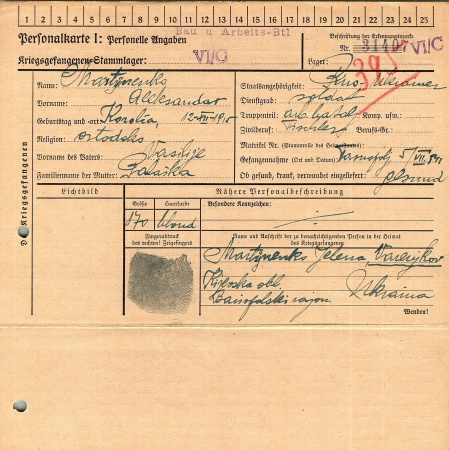 1 2 3 4 5 6 7 8 9 10 11 12 13 14 15 16 17 18 19 20 21 22 23 24 25
Personalkarte I: Personelle Angaben
Bau u Arbeits-Btl
Beschriftung der Erkennungsmarke
Nr. 31407 VI/C
Kriegsgefangenen-Stammlager:
VI/C
Lager:
Des Kriegsgefangenen
Name: Martynenko
Vorname: Aleksandar
Geburtstag und -ort: 12-VII-1915
Religion: ortodoks
Vorname des Vaters: Vasilije
Familienname der Mutter:
Staatsangehörigkeit: Ukrainer
Dienstgrad: soldat
Truppenteil: Komp. usw.:
Zivilberuf: Berufs-Gr.:
Matrikel Nr. (Stammrolle des Heimatstaates):
Gefangennahme (Ort und Datum): 5/VII 941
Ob gesund, krank, verwundet eingeliefert:
gesund
Lichtbild
Nähere Personalbeschreibung
Größe
Haarfarbe
Besondere Kennzeichen:
170
blond
Fingerabdruck
des rechten! Zeigefingers
Name und Anschrift der zu benachrichtigenden Person in der Heimat
des Kriegsgefangenen
Martynenko Jelena,
Kijevska obl. Ukraina
rajon.
Wenden!